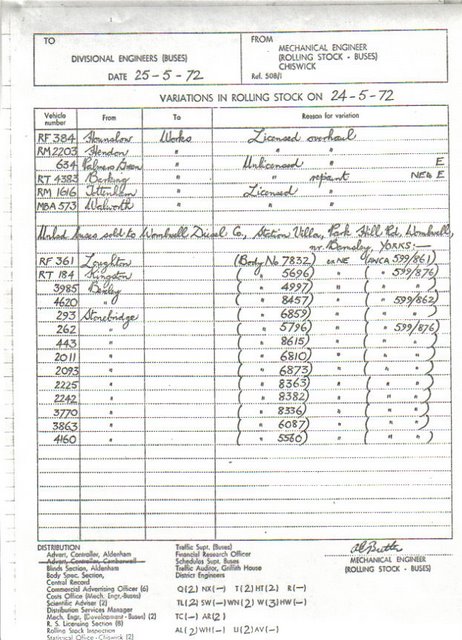 TO
DIVISIONAL ENGINEERS (BUSES)
DATE 25-5-72
FROM
MECHANICAL ENGINEER
(ROLLING STOCK - BUSES)
CHISWICK
Ref. 508/1
VARIATIONS IN ROLLING STOCK ON 24-5-72
Vehicle number From To Reason for variation
RF 384 Hounslow Works Licensed overhaul
RM 2203 Hendon " " "
634 Palmers Green " Unlicensed " E
RT 4383 Barking " " repaint NE4 E
RM 1616 Tottenham " Licensed "
MBA 573 Walworth " " "
Unlcd buses sold to Wombwell Diesel Co, Station Villa, Park Hill Rd, Wombwell,
nr. Barnsley, YORKS:—
RF 361 Loughton (Body No 7832) ex NE (AVCA 599/861)
RT 184 Kingston ( " 5696) " ( " 599/876)
3985 Bexley ( " 4997) " ( " " )
4620 " ( " 8457) " ( " 599/862)
293 Stonebridge ( " 6859) " ( " " )
262 " ( " 5796) " ( " 599/876)
443 " ( " 8615) " ( " " )
2011 " ( " 6810) " ( " " )
2093 " ( " 6873) " ( " " )
2225 " ( " 8363) " ( " " )
2242 " ( " 8382) " ( " " )
3770 " ( " 8336) " ( " " )
3863 " ( " 6087) " ( " " )
4160 " ( " 5560) " ( " " )
DISTRIBUTION
Advert. Controller, Aldenham
Advert. Controller, Camberwell
Blinds Section, Aldenham
Body Spec. Section,
Central Record
Commercial Advertising Officer (6)
Costs Office (Mech. Engr.-Buses)
Scientific Adviser (2)
Distribution Services Manager
Mech. Engr. (Development - Buses) (2)
R. S. Licensing Section (6)
Rolling Stock Inspection
Statistical Office - Chiswick (2)
Traffic Supt. (Buses)
Financial Research Officer
Schedules Supt. Buses
Traffic Auditor, Griffith House
District Engineers
Q(2) NX(-) T(2) HT(2) R(-)
TL(2) SW(-) WN(2) W(3) HW(-)
TC(-) AR(2)
AL(2) WH(-) U(2) AV(-)
MECHANICAL ENGINEER
(ROLLING STOCK - BUSES)